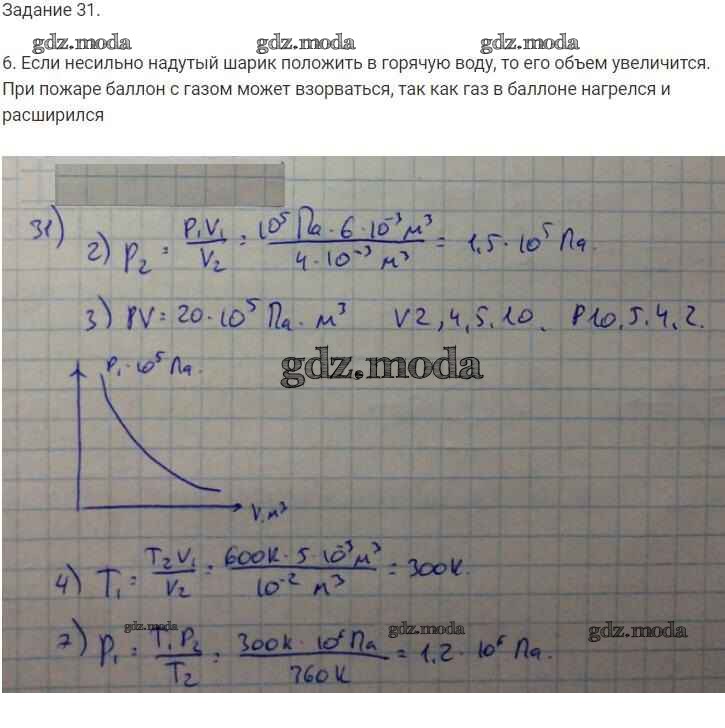 Задание 31.
gdz.moda gdz.moda gdz.moda
6. Если несильно надутый шарик положить в горячую воду, то его объем увеличится.
При пожаре баллон с газом может взорваться, так как газ в баллоне нагрелся и
расширился
31)
2) P₂ = P₁V₁/V₂ = 10⁵ Па · 6 · 10⁻³ м³ / 4 · 10⁻³ м³ = 1,5 · 10⁵ Па.
3) PV = 20 · 10⁵ Па · м³ V 2, 4, 5, 10. P 10, 5, 4, 2.
P, · 10⁵ Па.
gdz.moda
V, м³
4) T₁ = T₂V₁/V₂ = 600К · 5 · 10⁻³ м³ / 10⁻² м³ = 300К.
gdz.moda gdz.moda gdz.moda
7) P₁ = T₁P₂/T₂ = 300К · 10⁶ Па / 360К = 1,2 · 10⁶ Па.